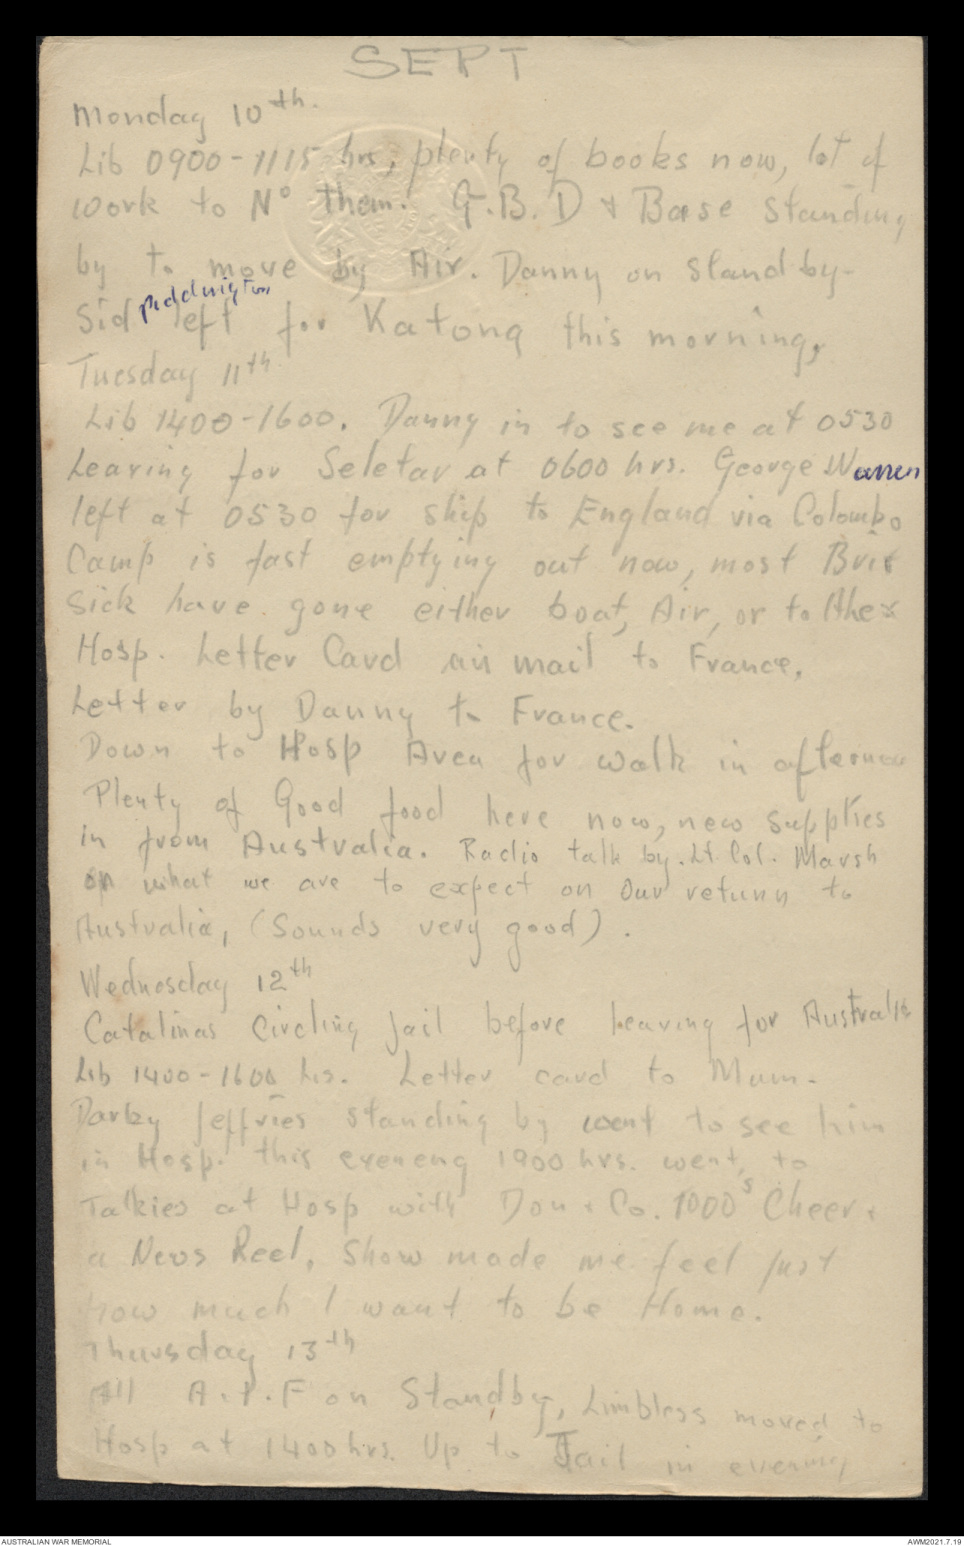 SEPT
Monday 10th.
Lib 0900-1115 hrs, plenty of books now, lot of
work to No them. G.B.D & Base standing
by to move by Air. Danny on stand-by-
Sid Piddington left for Katong this morning,
Tuesday 11th
Lib 1400-1600. Danny in to see me at 0530
Leaving for Seletar at 0600 hrs. George Warren
left at 0530 for ship to England via Colombo
Camp is fast emptying out now, most Brit
Sick have gone either boat, Air, or to other
Hosp. Letter Card air mail to France.
Letter by Danny to France.
Down to Hosp Area for walk in afternoon
Plenty of Good food here now, new supplies
in from Australia. Radio talk by. Lt. Col. Marsh
on what we are to expect on our return to
Australia, (Sounds very good).
Wednesday 12th
Catalinas Circling Jail before leaving for Australia
Lib 1400-1600 hrs. Letter card to Mum.
Darby Jeffries standing by went to see him
in Hosp. this eveneng 1900 hrs. went, to
Talkies at Hosp with Don & Co. 1000s Cheer &
a News Reel, Show made me feel just
how much I want to be Home.
Thursday 13th
All A.I.F on Standby, Limbless moved to
Hosp at 1400 hrs. Up to Jail in evening
AUSTRALIAN WAR MEMORIAL
AWM2021.7.19